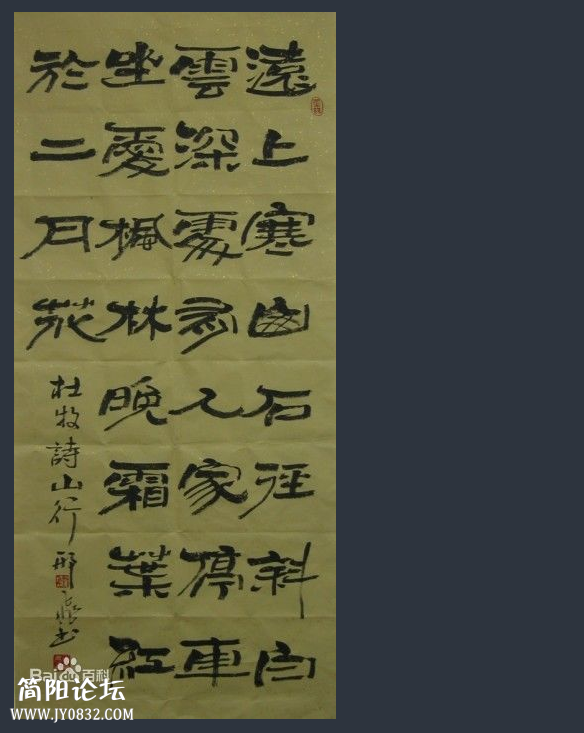 遠上寒山石徑斜白
雲深處有人家停車
坐愛楓林晚霜葉紅
於二月花
杜牧詩山行
Bai百科
简阳论坛
WWW.JY0832.COM